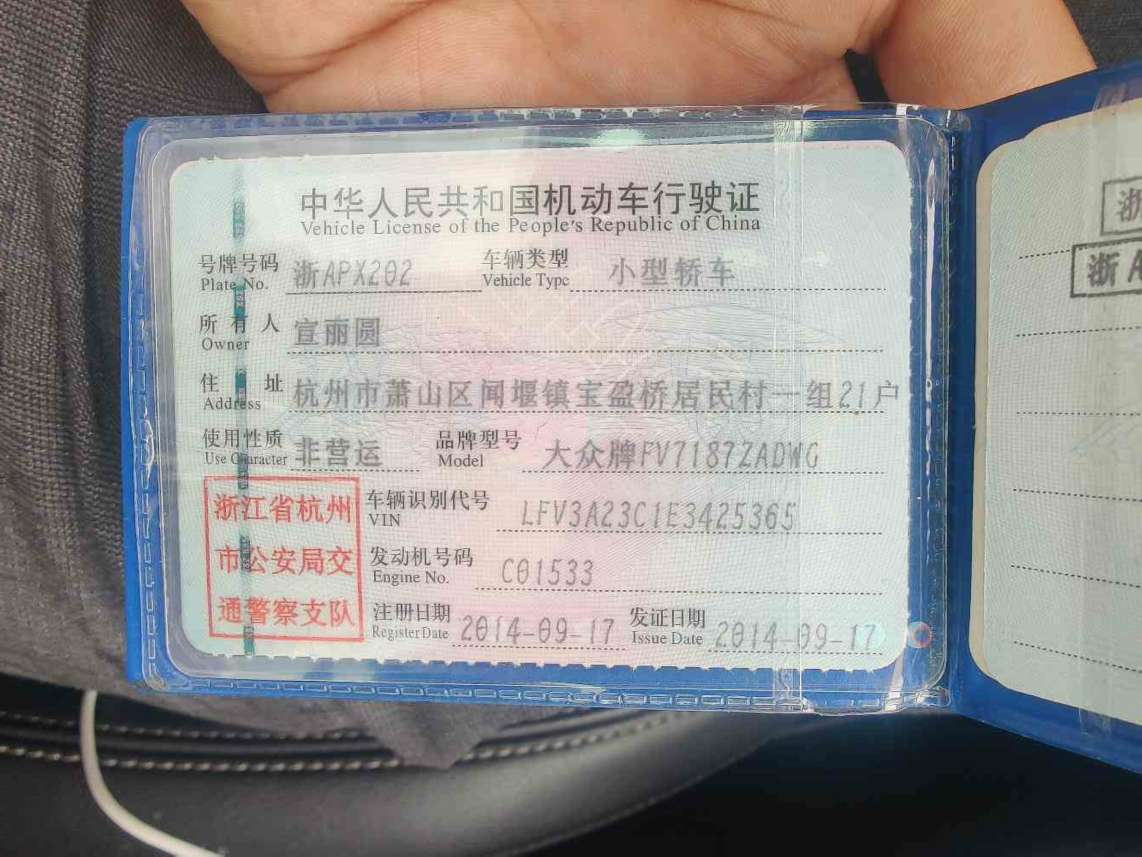 中华人民共和国机动车行驶证
Vehicle License of the People's Republic of China
号牌号码 浙APX202 车辆类型 小型轿车
Plate No. Vehicle Type
所有人 宣丽圆
Owner
住址 杭州市萧山区闻堰镇宝盈桥居民村一组21户
Address
使用性质 非营运 品牌型号 大众牌FV7187ZADWG
Use Character Model
浙江省杭州
市公安局交
通警察支队
车辆识别代号 LFV3A23C1E3425365
VIN
发动机号码 C01533
Engine No.
注册日期 2014-09-17 发证日期 2014-09-17
Register Date Issue Date
浙
浙A